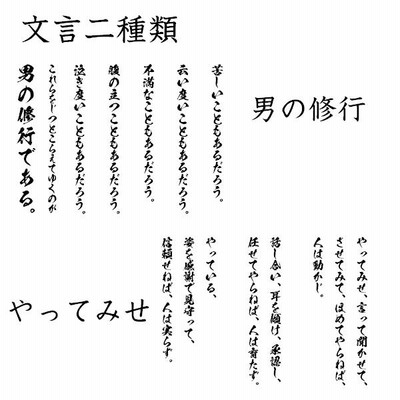 文言二種類
男の修行
苦しいこともあるだろう。
云い度いこともあるだろう。
不満なこともあるだろう。
腹の立つこともあるだろう。
泣き度いこともあるだろう。
これらをじっとこらえてゆくのが
男の修行である。
やってみせ
やってみせ、言って聞かせて、
させてみて、ほめてやらねば、
人は動かじ。
話し合い、耳を傾け、承認し、
任せてやらねば、人は育たず。
やっている、
姿を感謝で見守って、
信頼せねば、人は実らず。